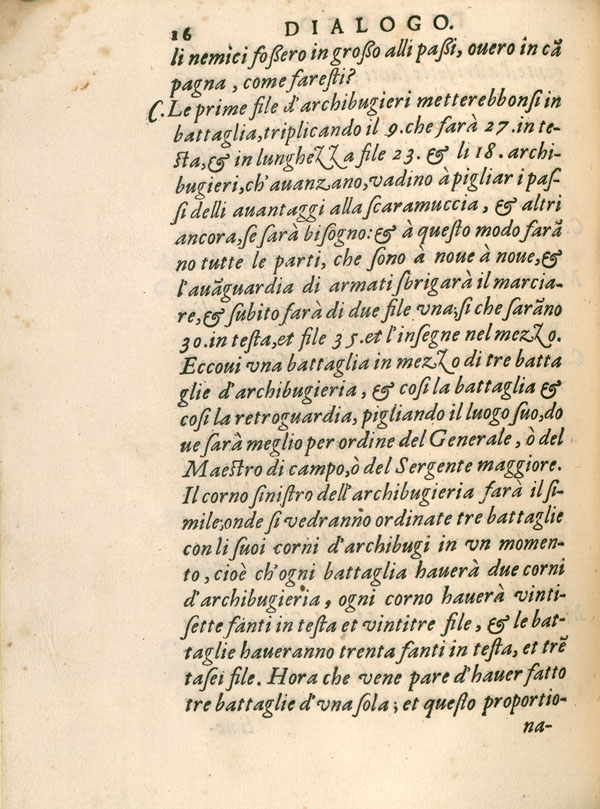 16 DIALOGO.
li nemici foßero in großo alli paßi, ouero in cã
pagna, come faresti?
C. Le prime file d'archibugieri metterebbonsi in
battaglia, triplicando il 9. che farà 27. in te-
sta, & in lunghezza file 23. & li 18. archi-
bugieri, ch'auanzano, vadino à pigliar i pas-
si delli auantaggi alla scaramuccia, & altri
ancora, se sarà bisogno: & à questo modo farã
no tutte le parti, che sono à noue à noue, &
l'auãguardia di armati sbrigarà il marcia-
re, & subito farà di due file vna; si che sarãno
30. in testa, et file 35. et l'insegne nel mezzo.
Eccoui vna battaglia in mezzo di tre batta
glie d'archibugieria, & cosi la battaglia &
cosi la retroguardia, pigliando il luogo suo, do
ue sarà meglio per ordine del Generale, ò del
Maestro di campo, ò del Sergente maggiore.
Il corno sinistro dell'archibugieria farà il si-
mile; onde si vedranno ordinate tre battaglie
con li suoi corni d'archibugi in vn momen-
to, cioè ch'ogni battaglia hauerà due corni
d'archibugieria, ogni corno hauerà vinti-
sette fanti in testa et vintitre file, & le bat-
taglie haueranno trenta fanti in testa, et trẽ
tasei file. Hora che vene pare d'hauer fatto
tre battaglie d'vna sola; et questo proportio-
na-